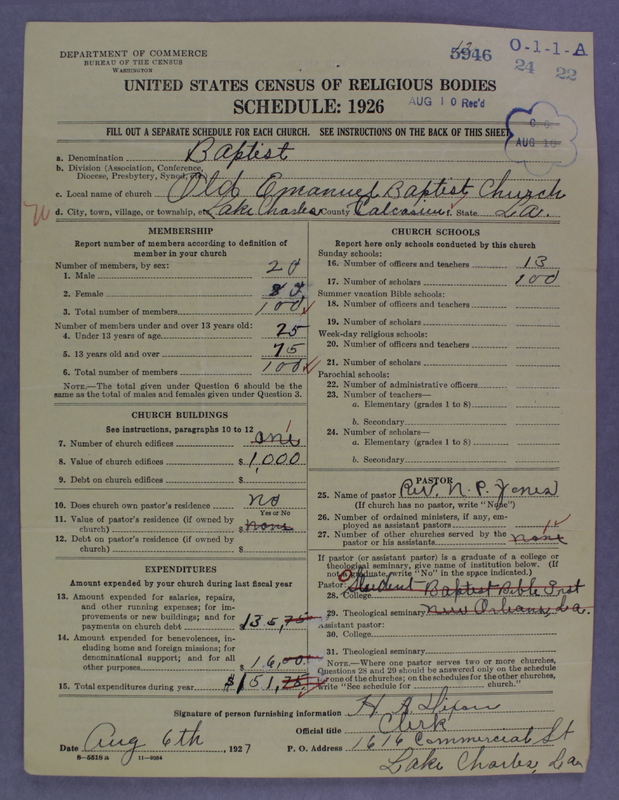 DEPARTMENT OF COMMERCE
BUREAU OF THE CENSUS
WASHINGTON
5946
O-1-1-A
24 22
UNITED STATES CENSUS OF RELIGIOUS BODIES
SCHEDULE: 1926
AUG 10 Rec'd
FILL OUT A SEPARATE SCHEDULE FOR EACH CHURCH. SEE INSTRUCTIONS ON THE BACK OF THIS SHEET
AUG 10
a. Denomination Baptist
b. Division (Association, Conference, Diocese, Presbytery, Synod, etc.)
c. Local name of church Old Emanuel Baptist Church
d. City, town, village, or township, or Lake Charles County Calcasieu f. State La.
MEMBERSHIP
Report number of members according to definition of
member in your church
Number of members, by sex:
1. Male 20
2. Female 80
3. Total number of members 100
Number of members under and over 13 years old:
4. Under 13 years of age 25
5. 13 years old and over 75
6. Total number of members 100
NOTE.—The total given under Question 6 should be
same as the total of males and females given under Question 3.
CHURCH BUILDINGS
See instructions, paragraphs 10 to 12
7. Number of church edifices one 1
8. Value of church edifices $1,000
9. Debt on church edifices $
10. Does church own pastor's residence no
Yes or No
11. Value of pastor's residence (if owned by
church) $ none
12. Debt on pastor's residence (if owned by
church) $
EXPENDITURES
Amount expended by your church during last fiscal year
13. Amount expended for salaries, repairs,
and other running expenses; for im-
provements or new buildings; and for
payments on church debt $135,75
14. Amount expended for benevolences, in-
cluding home and foreign missions; for
denominational support; and for all
other purposes $16,00
15. Total expenditures during year $151,75
CHURCH SCHOOLS
Report here only schools conducted by this church
Sunday schools:
16. Number of officers and teachers 13
17. Number of scholars 100
Summer vacation Bible schools:
18. Number of officers and teachers
19. Number of scholars
Week-day religious schools:
20. Number of officers and teachers
21. Number of scholars
Parochial schools:
22. Number of administrative officers
23. Number of teachers—
a. Elementary (grades 1 to 8)
b. Secondary
24. Number of scholars—
a. Elementary (grades 1 to 8)
b. Secondary
PASTOR
25. Name of pastor Rev. N. P. Jones
(If church has no pastor, write "None")
26. Number of ordained ministers, if any, em-
ployed as assistant pastors
27. Number of other churches served by the
pastor or his assistants none
If pastor (or assistant pastor) is a graduate of a college or
theological seminary, give name of institution below. (If
not graduate, write "No" in the space indicated.)
Pastor: Student Baptist Bible Inst
28. College
29. Theological seminary New Orleans, La.
Assistant pastor:
30. College
31. Theological seminary
NOTE.—Where one pastor serves two or more churches,
Questions 28 and 29 should be answered only on the schedule
for one of the churches; on the schedules for the other churches,
write "See schedule for church."
Signature of person furnishing information H. A. Dixon
Official title Clerk
Date Aug 6th, 1927 P. O. Address 1616 Commercial St
8—5518 a 11—9264
Lake Charles, La